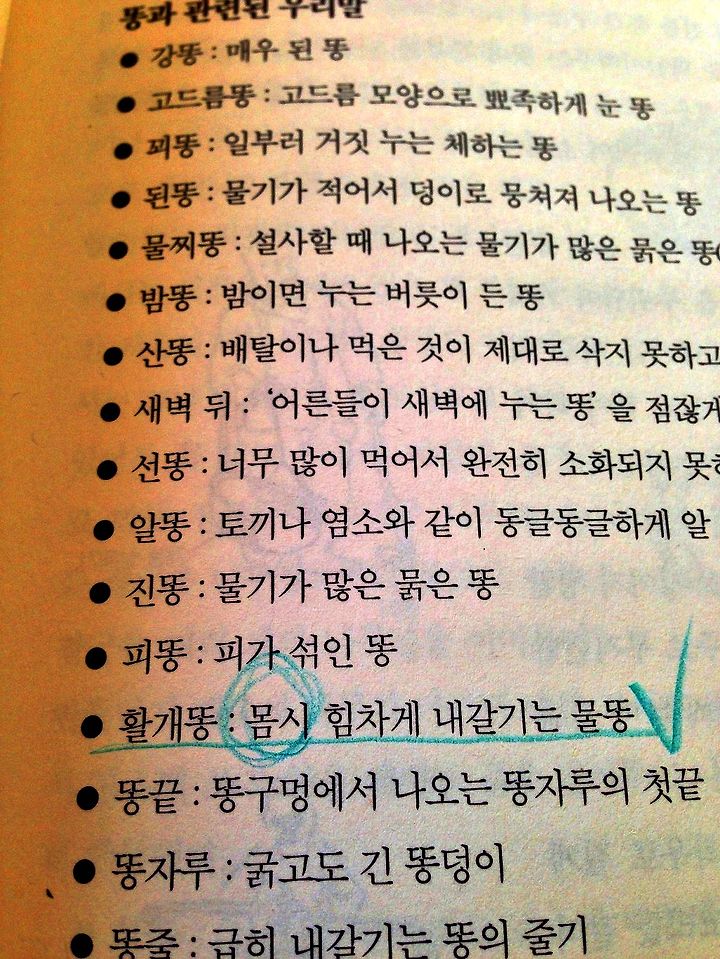 똥과 관련된 우리말
● 강똥 : 매우 된 똥
● 고드름똥 : 고드름 모양으로 뾰족하게 눈 똥
● 꾀똥 : 일부러 거짓 누는 체하는 똥
● 된똥 : 물기가 적어서 덩이로 뭉쳐져 나오는 똥
● 물찌똥 : 설사할 때 나오는 물기가 많은 묽은 똥(
● 밤똥 : 밤이면 누는 버릇이 든 똥
● 산똥 : 배탈이나 먹은 것이 제대로 삭지 못하고
● 새벽 뒤 : ‘어른들이 새벽에 누는 똥’을 점잖게
● 선똥 : 너무 많이 먹어서 완전히 소화되지 못하
● 알똥 : 토끼나 염소와 같이 동글동글하게 알
● 진똥 : 물기가 많은 묽은 똥
● 피똥 : 피가 섞인 똥
● 활개똥 : 몹시 힘차게 내갈기는 물똥
● 똥끝 : 똥구멍에서 나오는 똥자루의 첫끝
● 똥자루 : 굵고도 긴 똥덩이
● 똥줄 : 급히 내갈기는 똥의 줄기